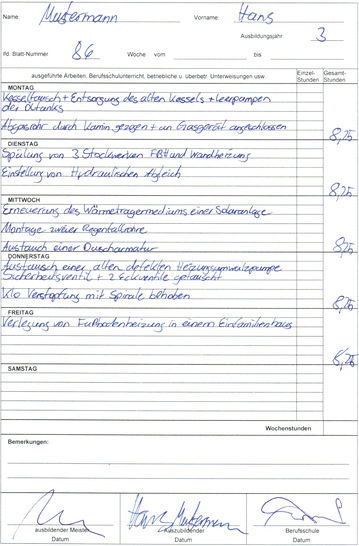 Name: Mustermann Vorname: Hans
Ausbildungsjahr: 3
lfd. Blatt-Nummer 86 Woche vom bis
ausgeführte Arbeiten, Berufsschulunterricht, betriebliche u. überbetr. Unterweisungen usw. Einzel-Stunden Gesamt-Stunden
MONTAG
Kesseltausch + Entsorgung des alten Kessels + Leerpumpen
des Öltanks
Abgasrohr durch Kamin gezogen + an Gasgerät angeschlossen
8,25
DIENSTAG
Spülung von 3 Stockwerken FBH und Wandheizung
Einstellung von Hydraulischen Abgleich
8,25
MITTWOCH
Erneuerung des Wärmeträgermediums einer Solaranlage
Montage zweier Regenfallrohre
Austauch einer Duscharmatur 8,25
DONNERSTAG
Austausch einer alten defekten Heizungsumwälzpumpe
Sicherheitsventil + 2 Eckventile getauscht
Klo Verstopfung mit Spirale behoben 8,25
FREITAG
Verlegung von Fußbodenheizung in einem Einfamilienhaus
8,25
SAMSTAG
Wochenstunden
Bemerkungen:
Hans Mustermann
ausbildender Meister Auszubildender Berufsschule
Datum Datum Datum